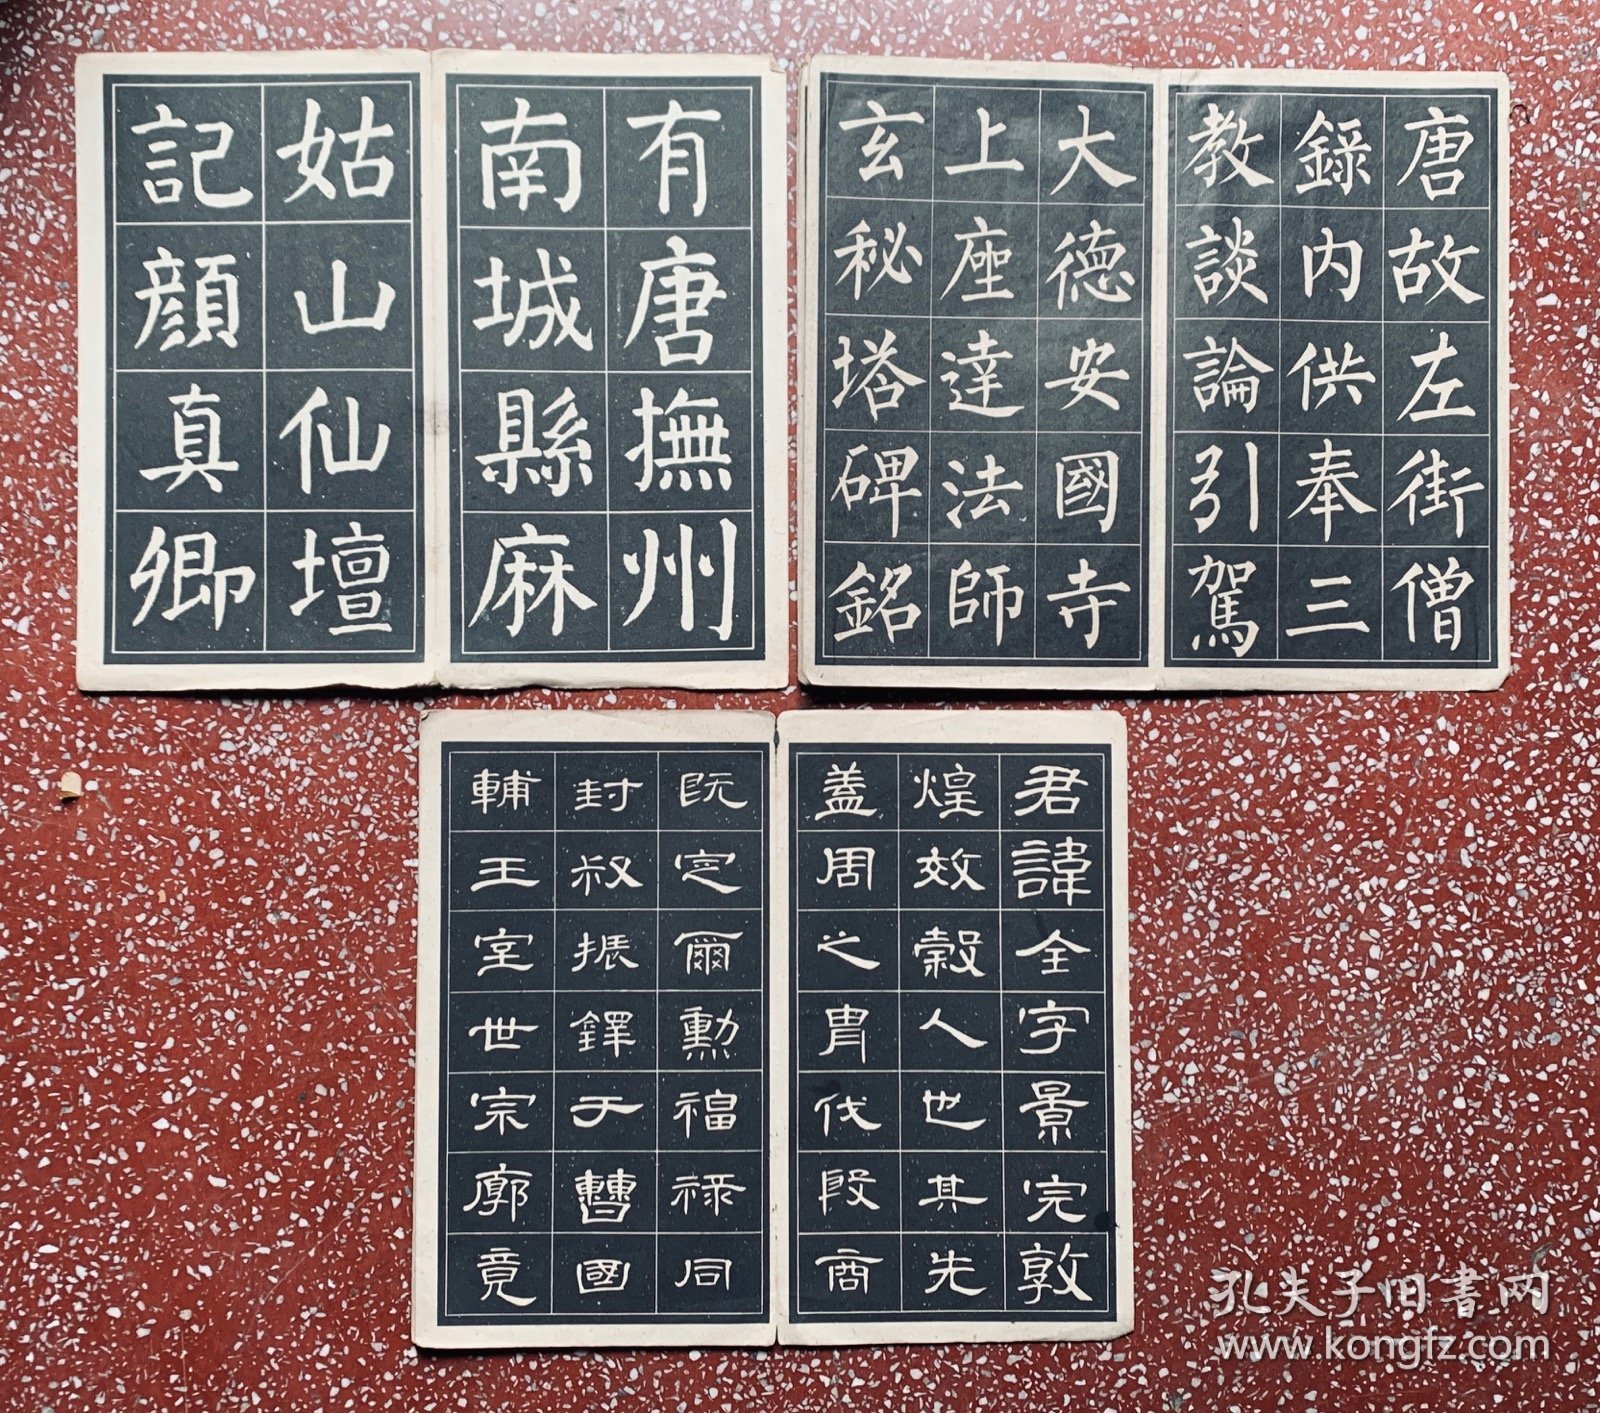 有唐撫州
南城縣麻
姑山仙壇
記顔真卿
唐故左街僧
錄內供奉三
教談論引駕
大德安國寺
上座達法師
玄秘塔碑銘
君諱全字景完敦
煌效穀人也其先
蓋周之胄伐殷商
既定爾勳福祿同
封叔振鐸于曹國
輔王室世宗廓竟
孔夫子旧书网
www.kongfz.com